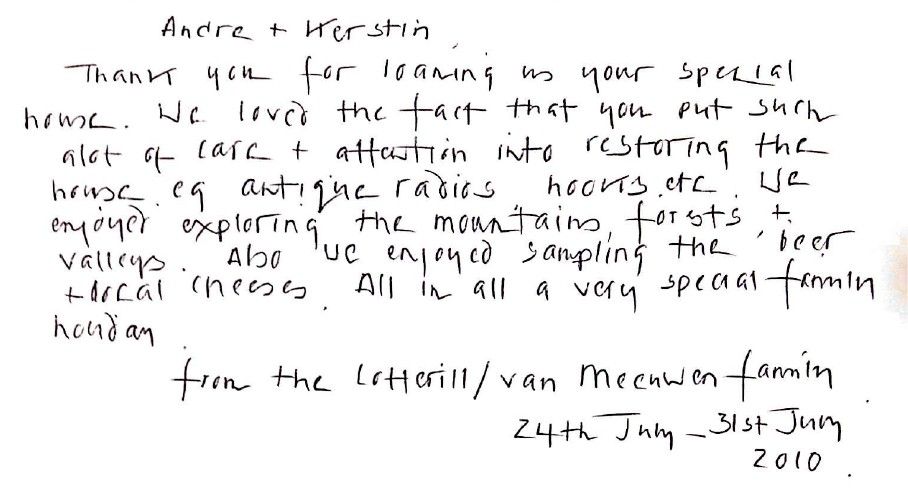 Andre + Kerstin
Thank you for loaning us your special
house. We loved the fact that you put such
alot of care + attention into restoring the
house eg antique radios hooks etc. We
enjoyed exploring the mountains, forsts +
valleys. Also we enjoyed sampling the beer
+ local cheeses. All in all a very special family
holiday
from the Cotterill/van Meeuwen family
24th July - 31st July
2010.